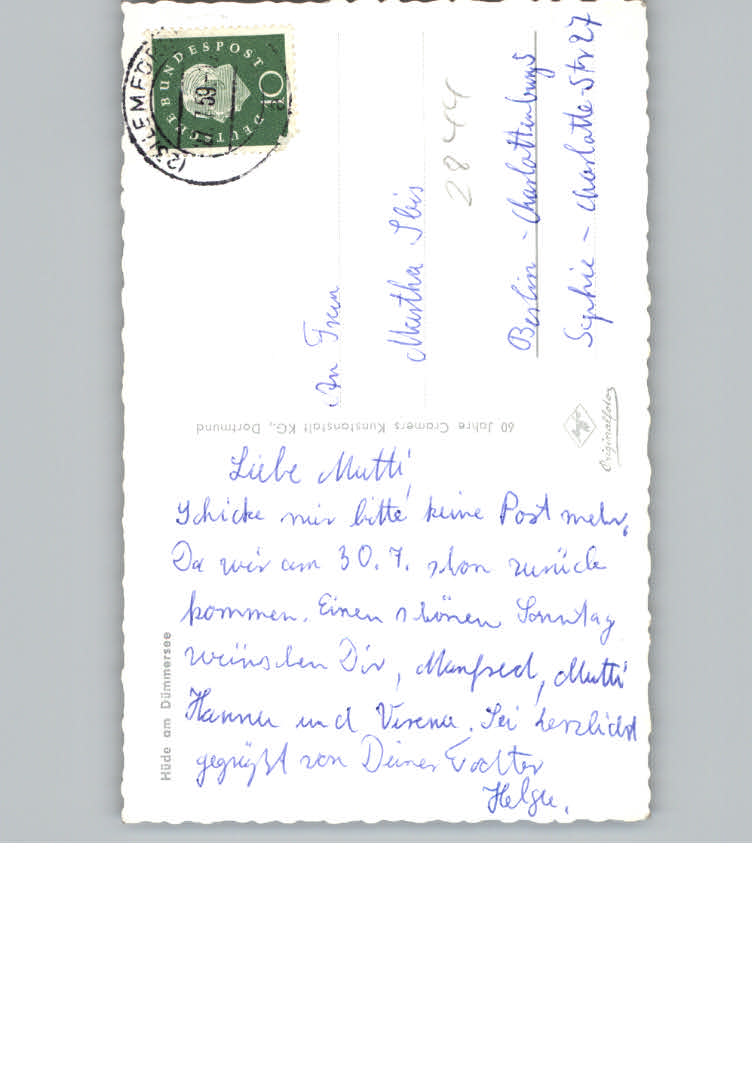 Liebe Mutti,
Schicke mir bitte keine Post mehr,
Da wir am 30. 7. schon zurück
kommen. Einen schönen Sonntag
wünschen Dir, Manfred, Mutti
Hanna und Verena. Sei herzlichst
gegrüßt von Deiner Tochter
Helga.
An Frau
Martha
2844
Berlin - Charlottenburg
Sophie - Charlotte-Str 27
DEUTSCHE BUNDESPOST
10
(23) LEMFÖ
7.59
60 Jahre Cramers Kunstanstalt KG., Dortmund
Agfa
Originalfoto
Hüde am Dümmersee